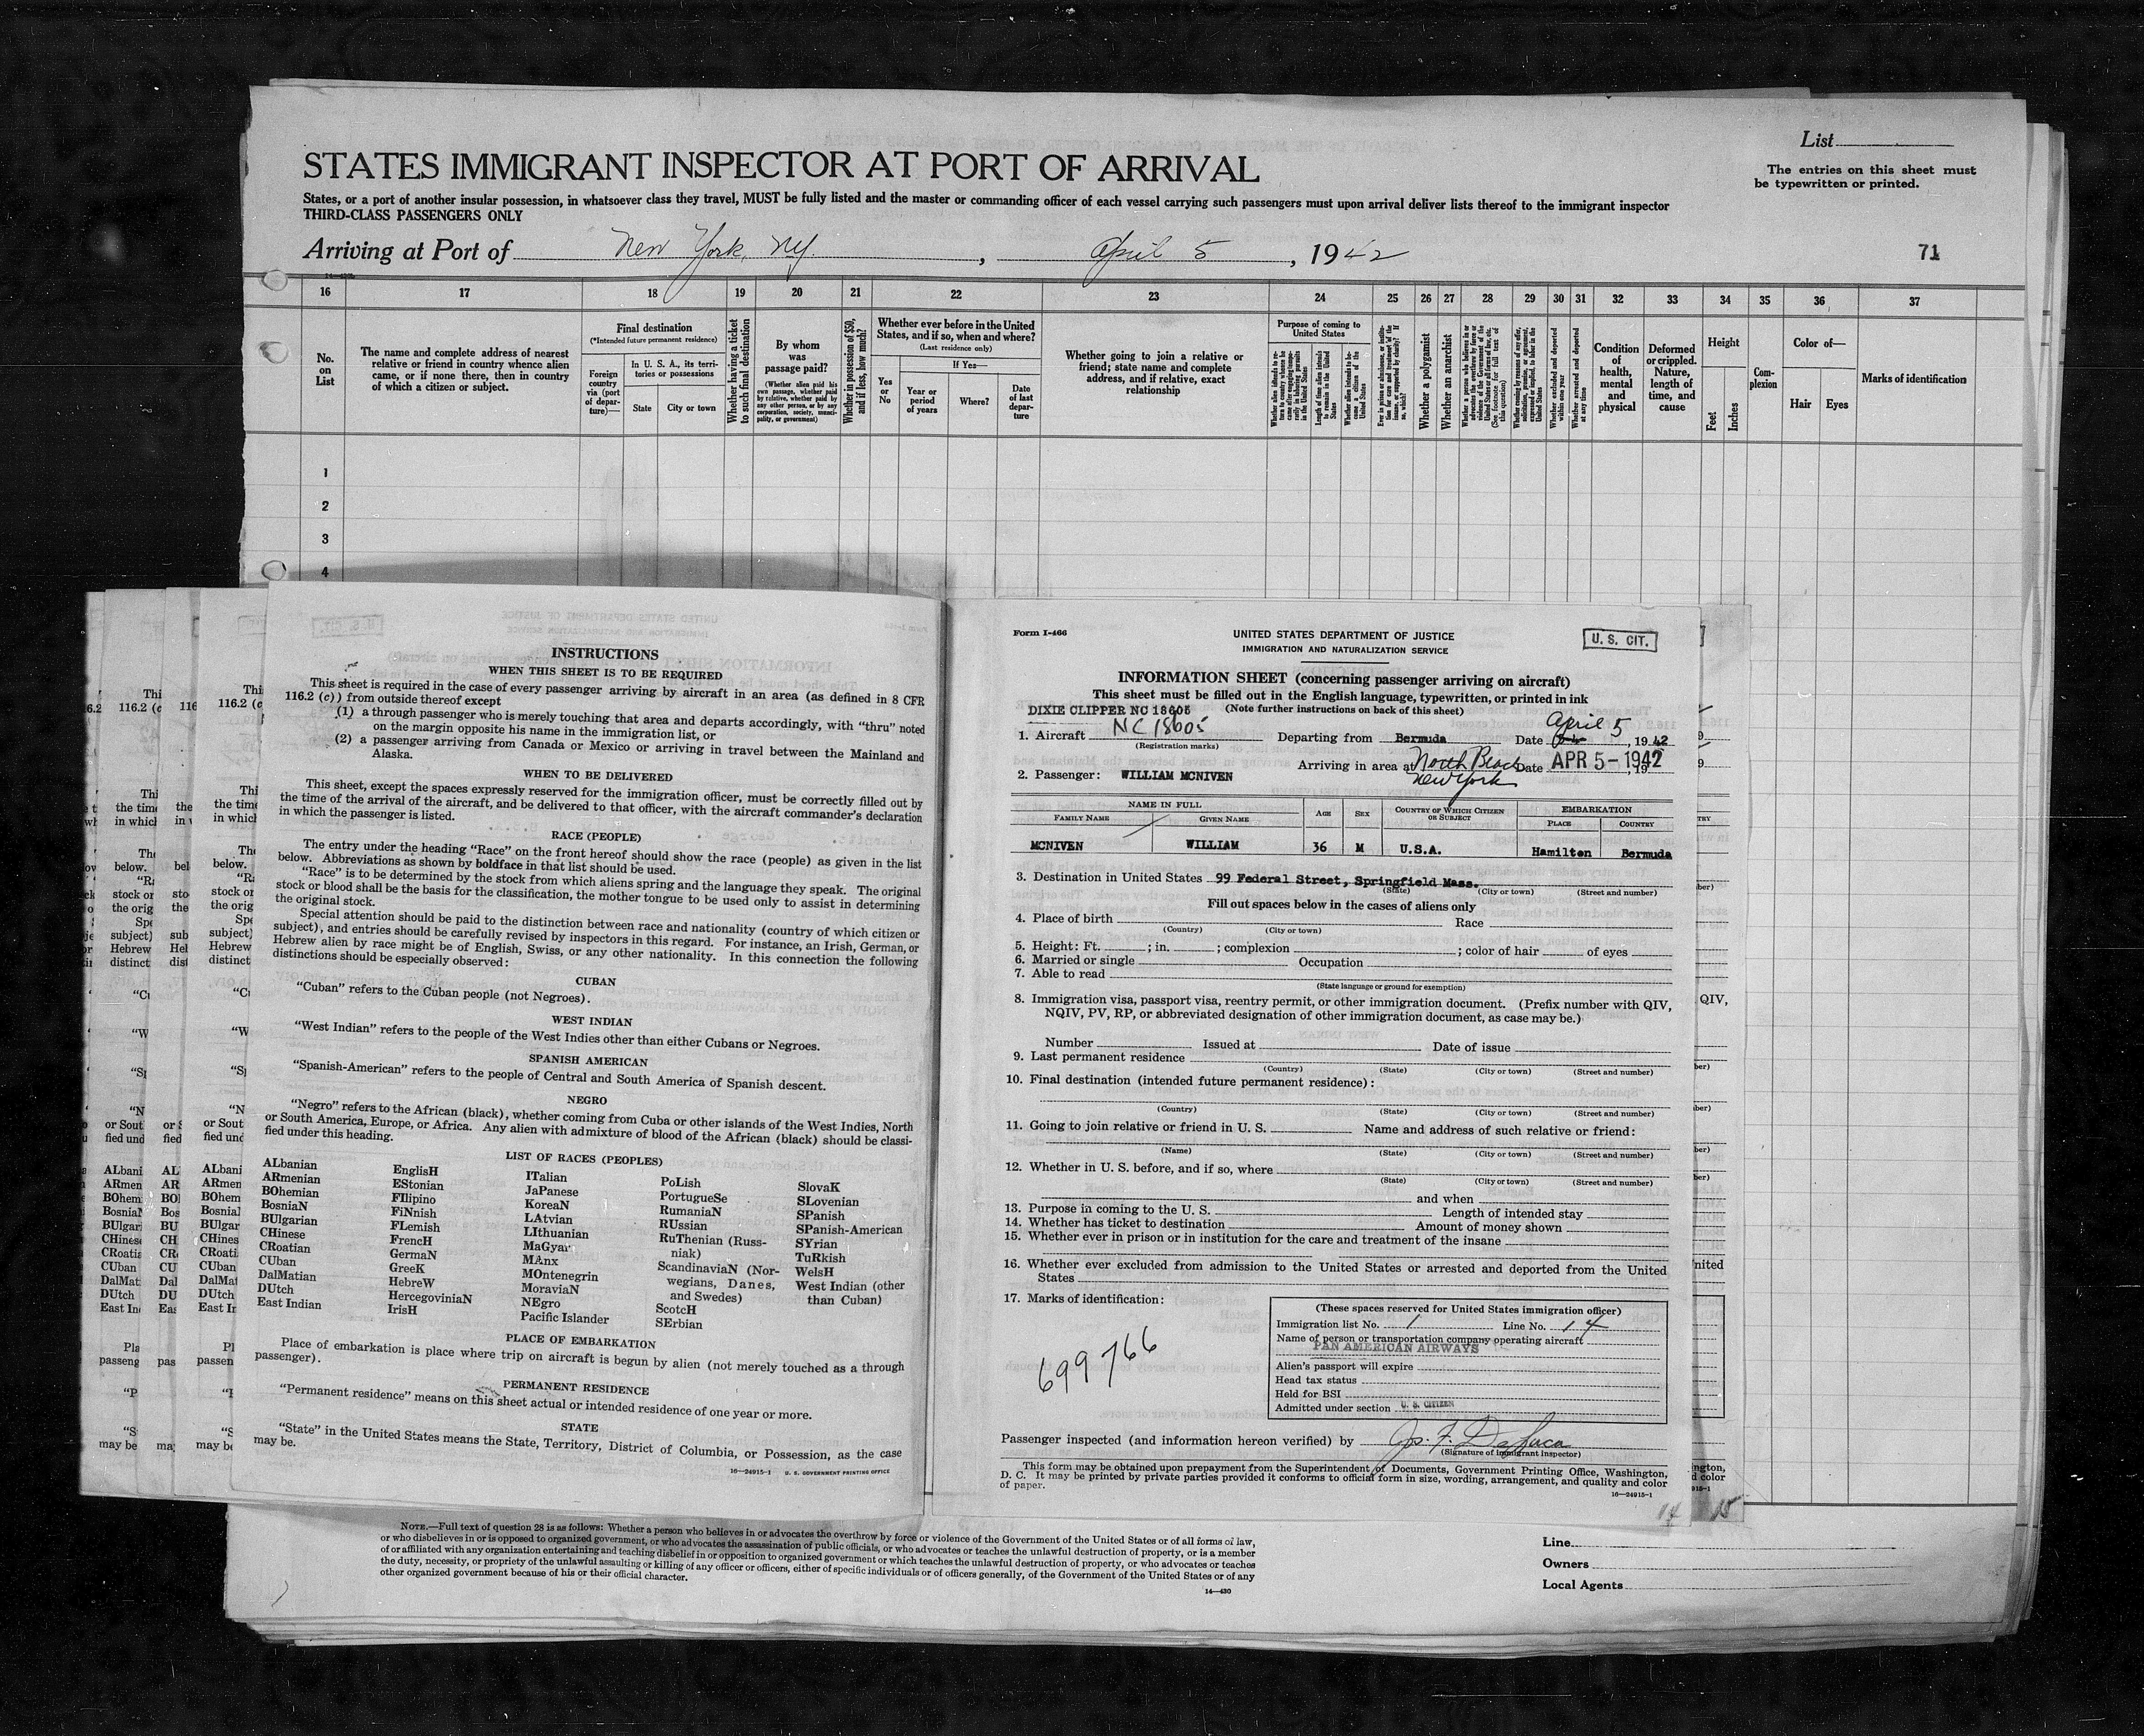 List
STATES IMMIGRANT INSPECTOR AT PORT OF ARRIVAL
The entries on this sheet must
be typewritten or printed.
States, or a port of another insular possession, in whatsoever class they travel, MUST be fully listed and the master or commanding officer of each vessel carrying such passengers must upon arrival deliver lists thereof to the immigrant inspector
THIRD-CLASS PASSENGERS ONLY
Arriving at Port of New York, NY. , April 5 , 1942
71
16 17 18 19 20 21 22 23 24 25 26 27 28 29 30 31 32 33 34 35 36 37
No.
on
List
The name and complete address of nearest
relative or friend in country whence alien
came, or if none there, then in country
of which a citizen or subject.
Final destination
(*Intended future permanent residence)
Foreign
country
via (port
of depar-
ture)—
In U. S. A., its terri-
tories or possessions
State
City or town
Whether having a ticket
to such final destination
By whom
was
passage paid?
(Whether alien paid his
own passage, whether paid
by relative, whether paid by
any other person, or by any
corporation, society, munici-
pality, or government)
Whether in possession of $50,
and if less, how much?
Whether ever before in the United
States, and if so, when and where?
(Last residence only)
Yes
or
No
If Yes—
Year or
period
of years
Where?
Date
of last
depar-
ture
Whether going to join a relative or
friend; state name and complete
address, and if relative, exact
relationship
Purpose of coming to
United States
Length of time alien intends
to remain in the United
States
Whether alien intends to be-
come a citizen of the
United States
Whether a polygamist
Whether an anarchist
Whether excluded and deported
within one year
Whether arrested and deported
at any time
Condition
of
health,
mental
and
physical
Deformed
or crippled.
Nature,
length of
time, and
cause
Height
Feet
Inches
Com-
plexion
Color of—
Hair
Eyes
Marks of identification
1
2
3
4
INSTRUCTIONS
WHEN THIS SHEET IS TO BE REQUIRED
This sheet is required in the case of every passenger arriving by aircraft in an area (as defined in 8 CFR
116.2 (c)) from outside thereof except
(1) a through passenger who is merely touching that area and departs accordingly, with “thru” noted
on the margin opposite his name in the immigration list, or
(2) a passenger arriving from Canada or Mexico or arriving in travel between the Mainland and
Alaska.
WHEN TO BE DELIVERED
This sheet, except the spaces expressly reserved for the immigration officer, must be correctly filled out by
the time of the arrival of the aircraft, and be delivered to that officer, with the aircraft commander’s declaration
in which the passenger is listed.
RACE (PEOPLE)
The entry under the heading “Race” on the front hereof should show the race (people) as given in the list
below. Abbreviations as shown by boldface in that list should be used.
“Race” is to be determined by the stock from which aliens spring and the language they speak. The original
stock or blood shall be the basis for the classification, the mother tongue to be used only to assist in determining
the original stock.
Special attention should be paid to the distinction between race and nationality (country of which citizen or
subject), and entries should be carefully revised by inspectors in this regard. For instance, an Irish, German, or
Hebrew alien by race might be of English, Swiss, or any other nationality. In this connection the following
distinctions should be especially observed:
CUBAN
“Cuban” refers to the Cuban people (not Negroes).
WEST INDIAN
“West Indian” refers to the people of the West Indies other than either Cubans or Negroes.
SPANISH AMERICAN
“Spanish-American” refers to the people of Central and South America of Spanish descent.
NEGRO
“Negro” refers to the African (black), whether coming from Cuba or other islands of the West Indies, North
or South America, Europe, or Africa. Any alien with admixture of blood of the African (black) should be classi-
fied under this heading.
LIST OF RACES (PEOPLES)
ALbanian
ARmenian
BOhemian
BosniaN
BUlgarian
CHinese
CRoatian
CUban
DalMatian
DUtch
East Indian
EnglisH
EStonian
FIlipino
FiNnish
FLemish
FrencH
GermaN
GreeK
HebreW
HercegoviniaN
IrisH
ITalian
JaPanese
KoreaN
LAtvian
LIthuanian
MaGyar
MAnx
MOntenegrin
MoraviaN
NEgro
Pacific Islander
PoLish
PortugueSe
RumaniaN
RUssian
RuThenian (Russ-
niak)
ScandinaviaN (Nor-
wegians, Danes,
and Swedes)
ScotcH
SErbian
SlovaK
SLovenian
SPanish
SPanish-American
SYrian
TuRkish
WelsH
West Indian (other
than Cuban)
PLACE OF EMBARKATION
Place of embarkation is place where trip on aircraft is begun by alien (not merely touched as a through
passenger).
PERMANENT RESIDENCE
“Permanent residence” means on this sheet actual or intended residence of one year or more.
STATE
“State” in the United States means the State, Territory, District of Columbia, or Possession, as the case
may be.
16—24915-1 U. S. GOVERNMENT PRINTING OFFICE
Form I-466
UNITED STATES DEPARTMENT OF JUSTICE
IMMIGRATION AND NATURALIZATION SERVICE
U. S. CIT.
INFORMATION SHEET (concerning passenger arriving on aircraft)
This sheet must be filled out in the English language, typewritten, or printed in ink
(Note further instructions on back of this sheet)
DIXIE CLIPPER NC 18605
NC 18605
1. Aircraft Departing from Bermuda Date April 5, 1942
(Registration marks)
Arriving in area at North Beach New York Date APR 5 - 1942
2. Passenger: WILLIAM MCNIVEN
NAME IN FULL
FAMILY NAME GIVEN NAME AGE SEX COUNTRY OF WHICH CITIZEN OR SUBJECT EMBARKATION
PLACE COUNTRY
MCNIVEN WILLIAM 36 M U.S.A. Hamilton Bermuda
3. Destination in United States 99 Federal Street, Springfield Mass.
(State) (City or town) (Street and number)
Fill out spaces below in the cases of aliens only
4. Place of birth Race
(Country) (City or town)
5. Height: Ft. ; in. ; complexion ; color of hair of eyes
6. Married or single Occupation
7. Able to read
(State language or ground for exemption)
8. Immigration visa, passport visa, reentry permit, or other immigration document. (Prefix number with QIV,
NQIV, PV, RP, or abbreviated designation of other immigration document, as case may be.)
Number Issued at Date of issue
9. Last permanent residence
(Country) (State) (City or town) (Street and number)
10. Final destination (intended future permanent residence):
(Country) (State) (City or town) (Street and number)
11. Going to join relative or friend in U. S. Name and address of such relative or friend:
(Name) (State) (City or town) (Street and number)
12. Whether in U. S. before, and if so, where
(State) (City or town) (Street and number)
and when
13. Purpose in coming to the U. S. Length of intended stay
14. Whether has ticket to destination Amount of money shown
15. Whether ever in prison or in institution for the care and treatment of the insane
16. Whether ever excluded from admission to the United States or arrested and deported from the United
States
17. Marks of identification:
699766
(These spaces reserved for United States immigration officer)
Immigration list No. 1 Line No. 14
Name of person or transportation company operating aircraft
PAN AMERICAN AIRWAYS
Alien’s passport will expire
Head tax status
Held for BSI
Admitted under section U. S. CITIZEN
Passenger inspected (and information hereon verified) by
(Signature of immigrant inspector)
This form may be obtained upon prepayment from the Superintendent of Documents, Government Printing Office, Washington,
D. C. It may be printed by private parties provided it conforms to official form in size, wording, arrangement, and quality and color
of paper.
16—24915-1
14 15
NOTE.—Full text of question 28 is as follows: Whether a person who believes in or advocates the overthrow by force or violence of the Government of the United States or of all forms of law,
or who disbelieves in or is opposed to organized government, or who advocates the assassination of public officials, or who advocates or teaches the unlawful destruction of property, or is a member
of or affiliated with any organization entertaining and teaching disbelief in or opposition to organized government or which teaches the unlawful destruction of property, or who advocates or teaches
the duty, necessity, or propriety of the unlawful assaulting or killing of any officer or officers, either of specific individuals or of officers generally, of the Government of the United States or of any
other organized government because of his or their official character.
14—430
Line
Owners
Local Agents